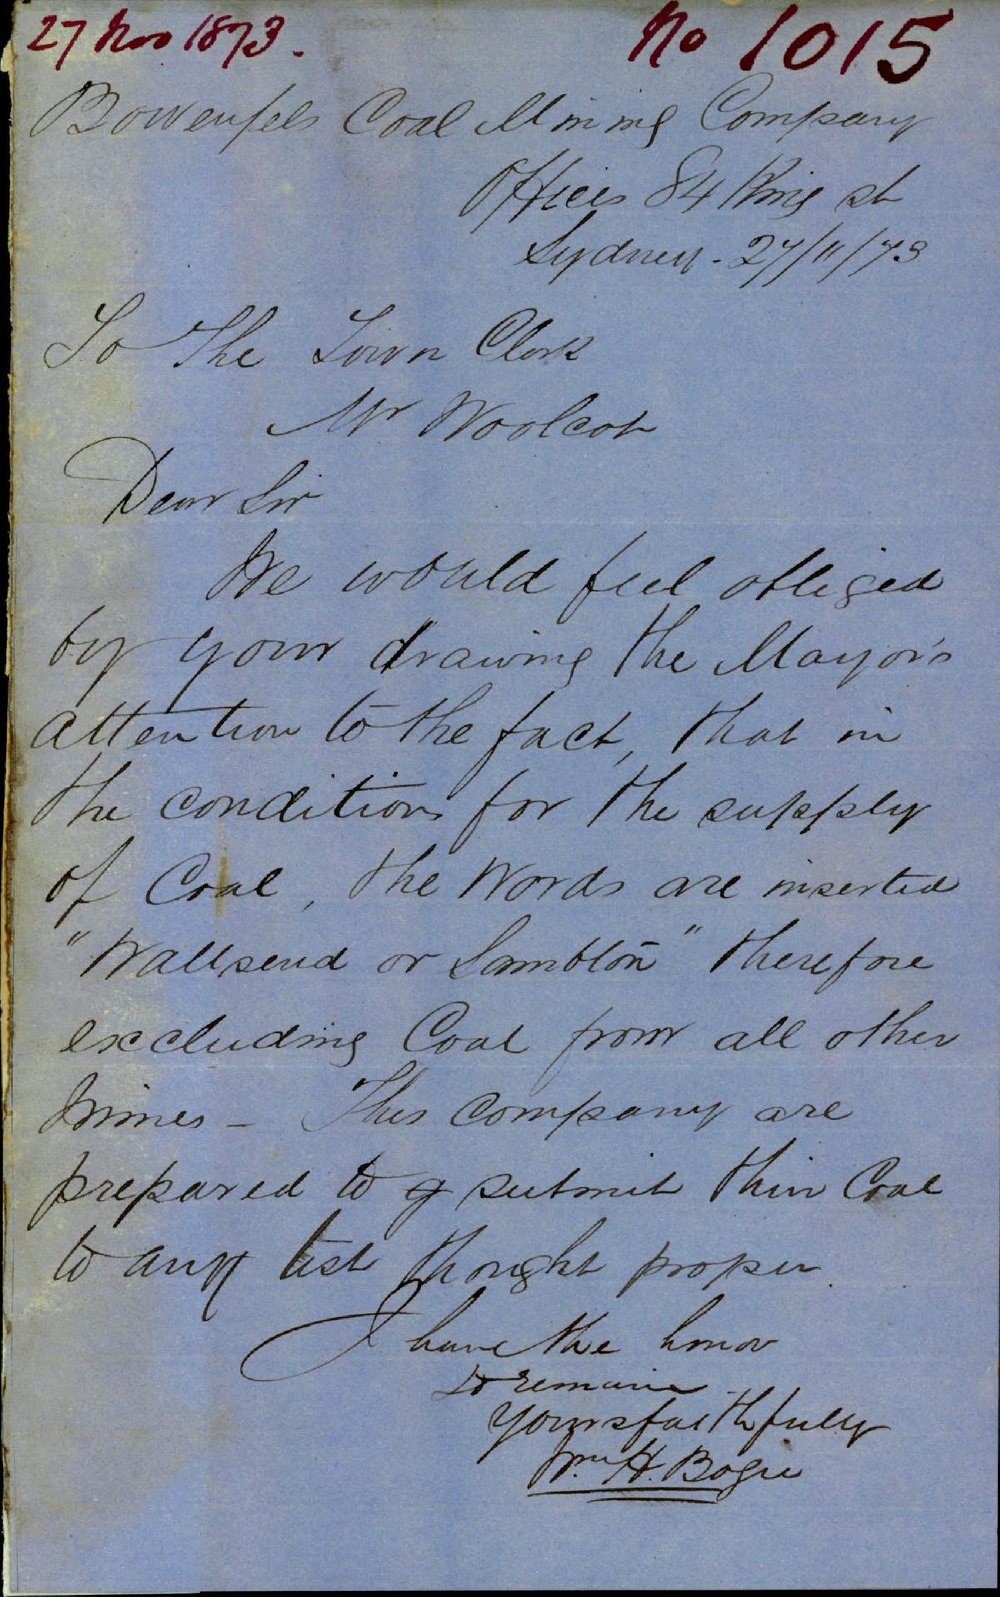 27 Nov 1873.
No 1015
Bowenfels Coal Mining Company
Offices 84 King st
Sydney - 27/11/73
To The Town Clerk
Mr Woolcot
Dear Sir
We would feel obliged
by your drawing the Mayor's
attention to the fact, that in
the conditions for the supply
of Coal, the Words are inserted
"Wallsend or Lambton" therefore
excluding Coal from all other
Mines - This Company are
prepared to submit thier Coal
to any test thought proper.
I have the honor
to remain
Yours faithfully
Wm. H. Bogie